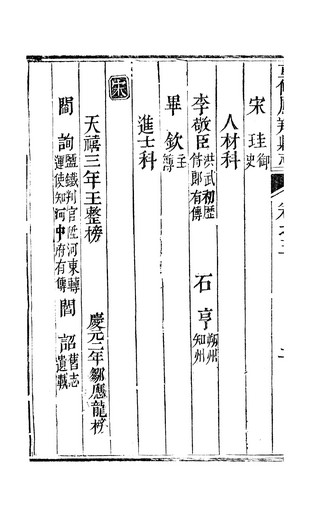 宋珪 御史
人材科
李敬臣 洪武初歷侍郎有傳 石亨 朔州知州
畢欽 主簿
進士科
宋
天禧三年王整榜 慶元二年鄒應龍榜
閻詢 鹽鐵判官陞河東轉運使知河中府有傳 閻詔 舊志遺載